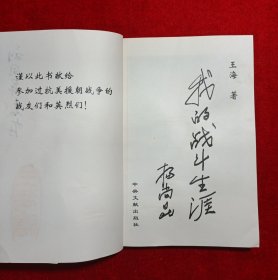 谨以此书献给
参加过抗美援朝战争的
战友们和英烈们!
王海 著
我的战斗生涯
杨尚昆
中央文献出版社